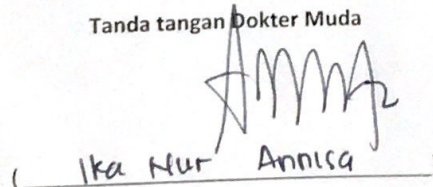 Tanda tangan Dokter Muda
( Ika Nur Annisa